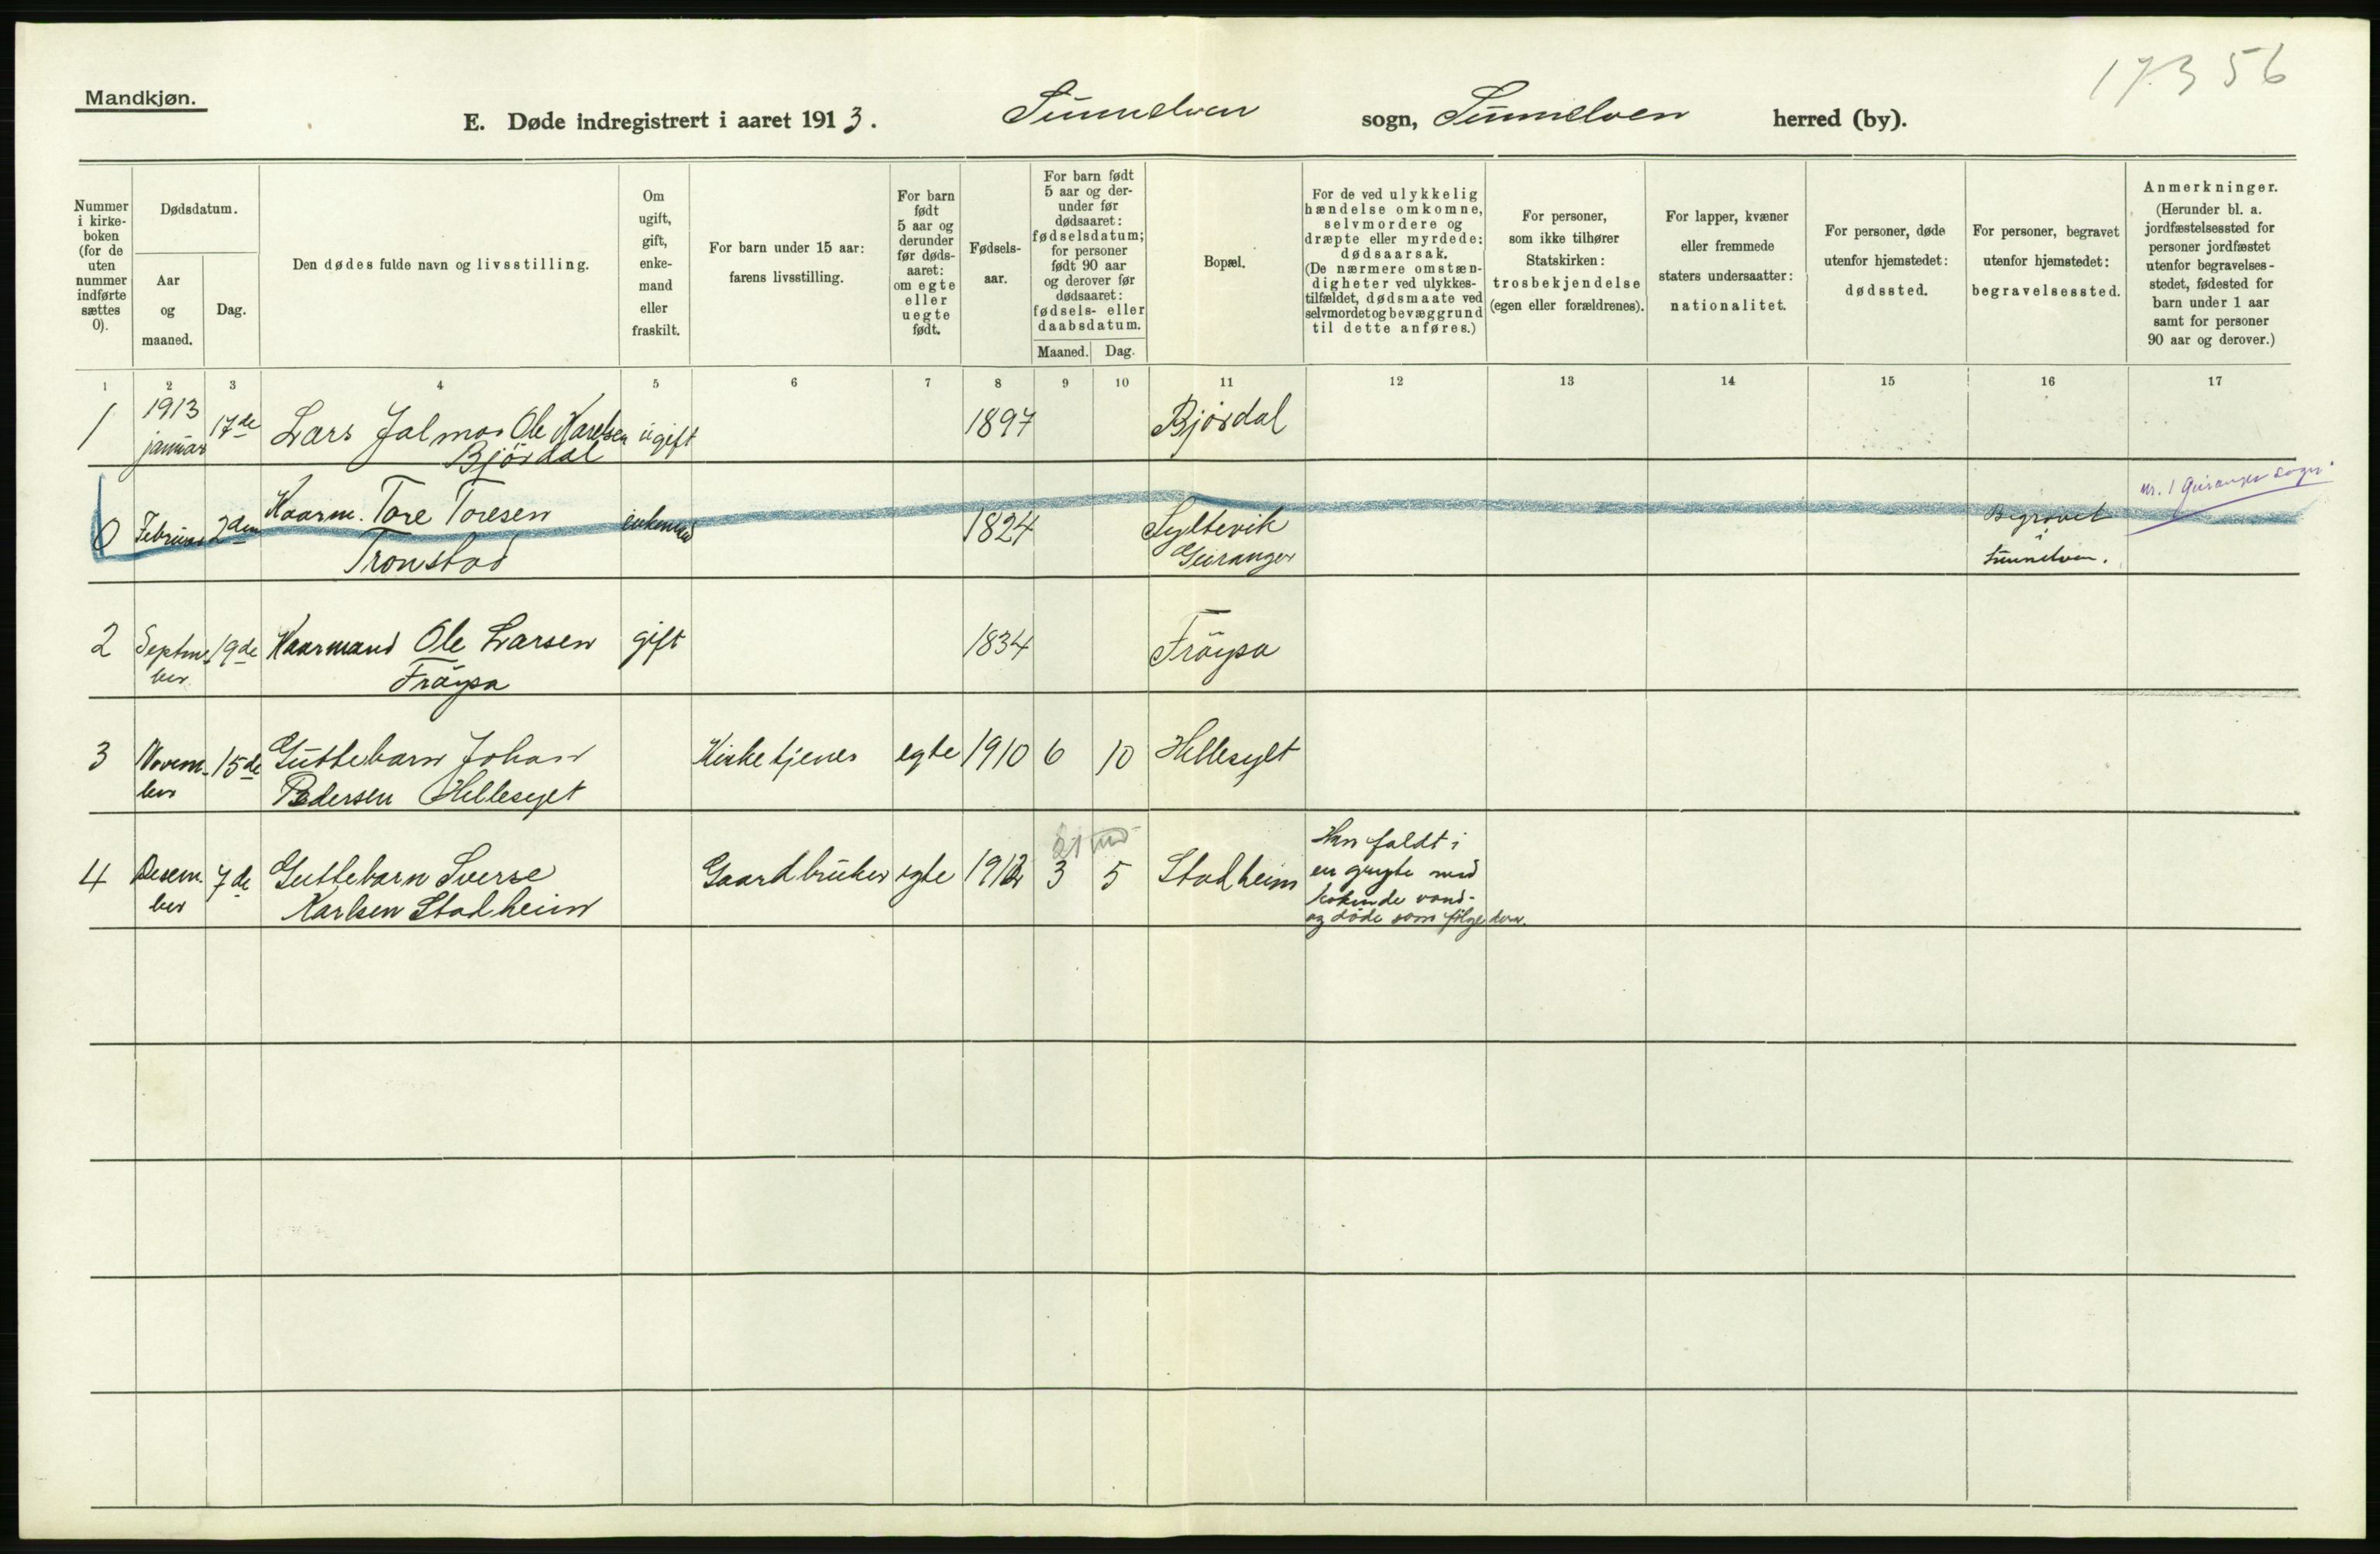 Mandkjøn.
17356
E. Døde indregistrert i aaret 1913. Sunnelven sogn, Sunnelven herred (by).
Nummer i kirke-boken (for de uten nummer indførte sættes 0).
Dødsdatum.
Aar og maaned.
Dag.
Den dødes fulde navn og livsstilling.
Om ugift, gift, enke-mand eller fraskilt.
For barn under 15 aar: farens livsstilling.
For barn født 5 aar og derunder før døds-aaret: om egte eller uegte født.
Fødsels-aar.
For barn født 5 aar og der-under før dødsaaret: fødselsdatum; for personer født 90 aar og derover før dødsaaret: fødsels- eller daabsdatum.
Maaned. Dag.
Bopæl.
For de ved ulykkelig hændelse omkomne, selvmordere og dræpte eller myrdede: dødsaarsak. (De nærmere omstæn-digheter ved ulykkes-tilfældet, dødsmaate ved selvmordet og bevæggrund til dette anføres.)
For personer, som ikke tilhører Statskirken: trosbekjendelse (egen eller forældrenes).
For lapper, kvæner eller fremmede staters undersaatter: nationalitet.
For personer, døde utenfor hjemstedet: dødssted.
For personer, begravet utenfor hjemstedet: begravelsessted.
Anmerkninger. (Herunder bl. a. jordfæstelsessted for personer jordfæstet utenfor begravelses-stedet, fødested for barn under 1 aar samt for personer 90 aar og derover.)
1 2 3 4 5 6 7 8 9 10 11 12 13 14 15 16 17
1 1913 januar 17de Lars Jalmar Ole Karelsen Bjørdal ugift 1897 Bjørdal
0 Februar 2den Kaarm. Tore Toresen Tronstad enkemand 1824 Syltevik Geiranger Begravet i Sunnelven. nr. 1 Geiranger sogn.
2 Septem-ber 19de Kaarmand Ole Larsen Frøysa gift 1834 Frøysa
3 Novem-ber 15de Guttebarn Johan Pedersen Hellesylt Kirketjener egte 1910 6 10 Hellesylt
21 md
4 Desem-ber 7de Guttebarn Sverre Karlsen Stadheim Gaardbruker egte 1912 3 5 Stadheim Han faldt i en gryte med kokende vand- og døde som følge derav.